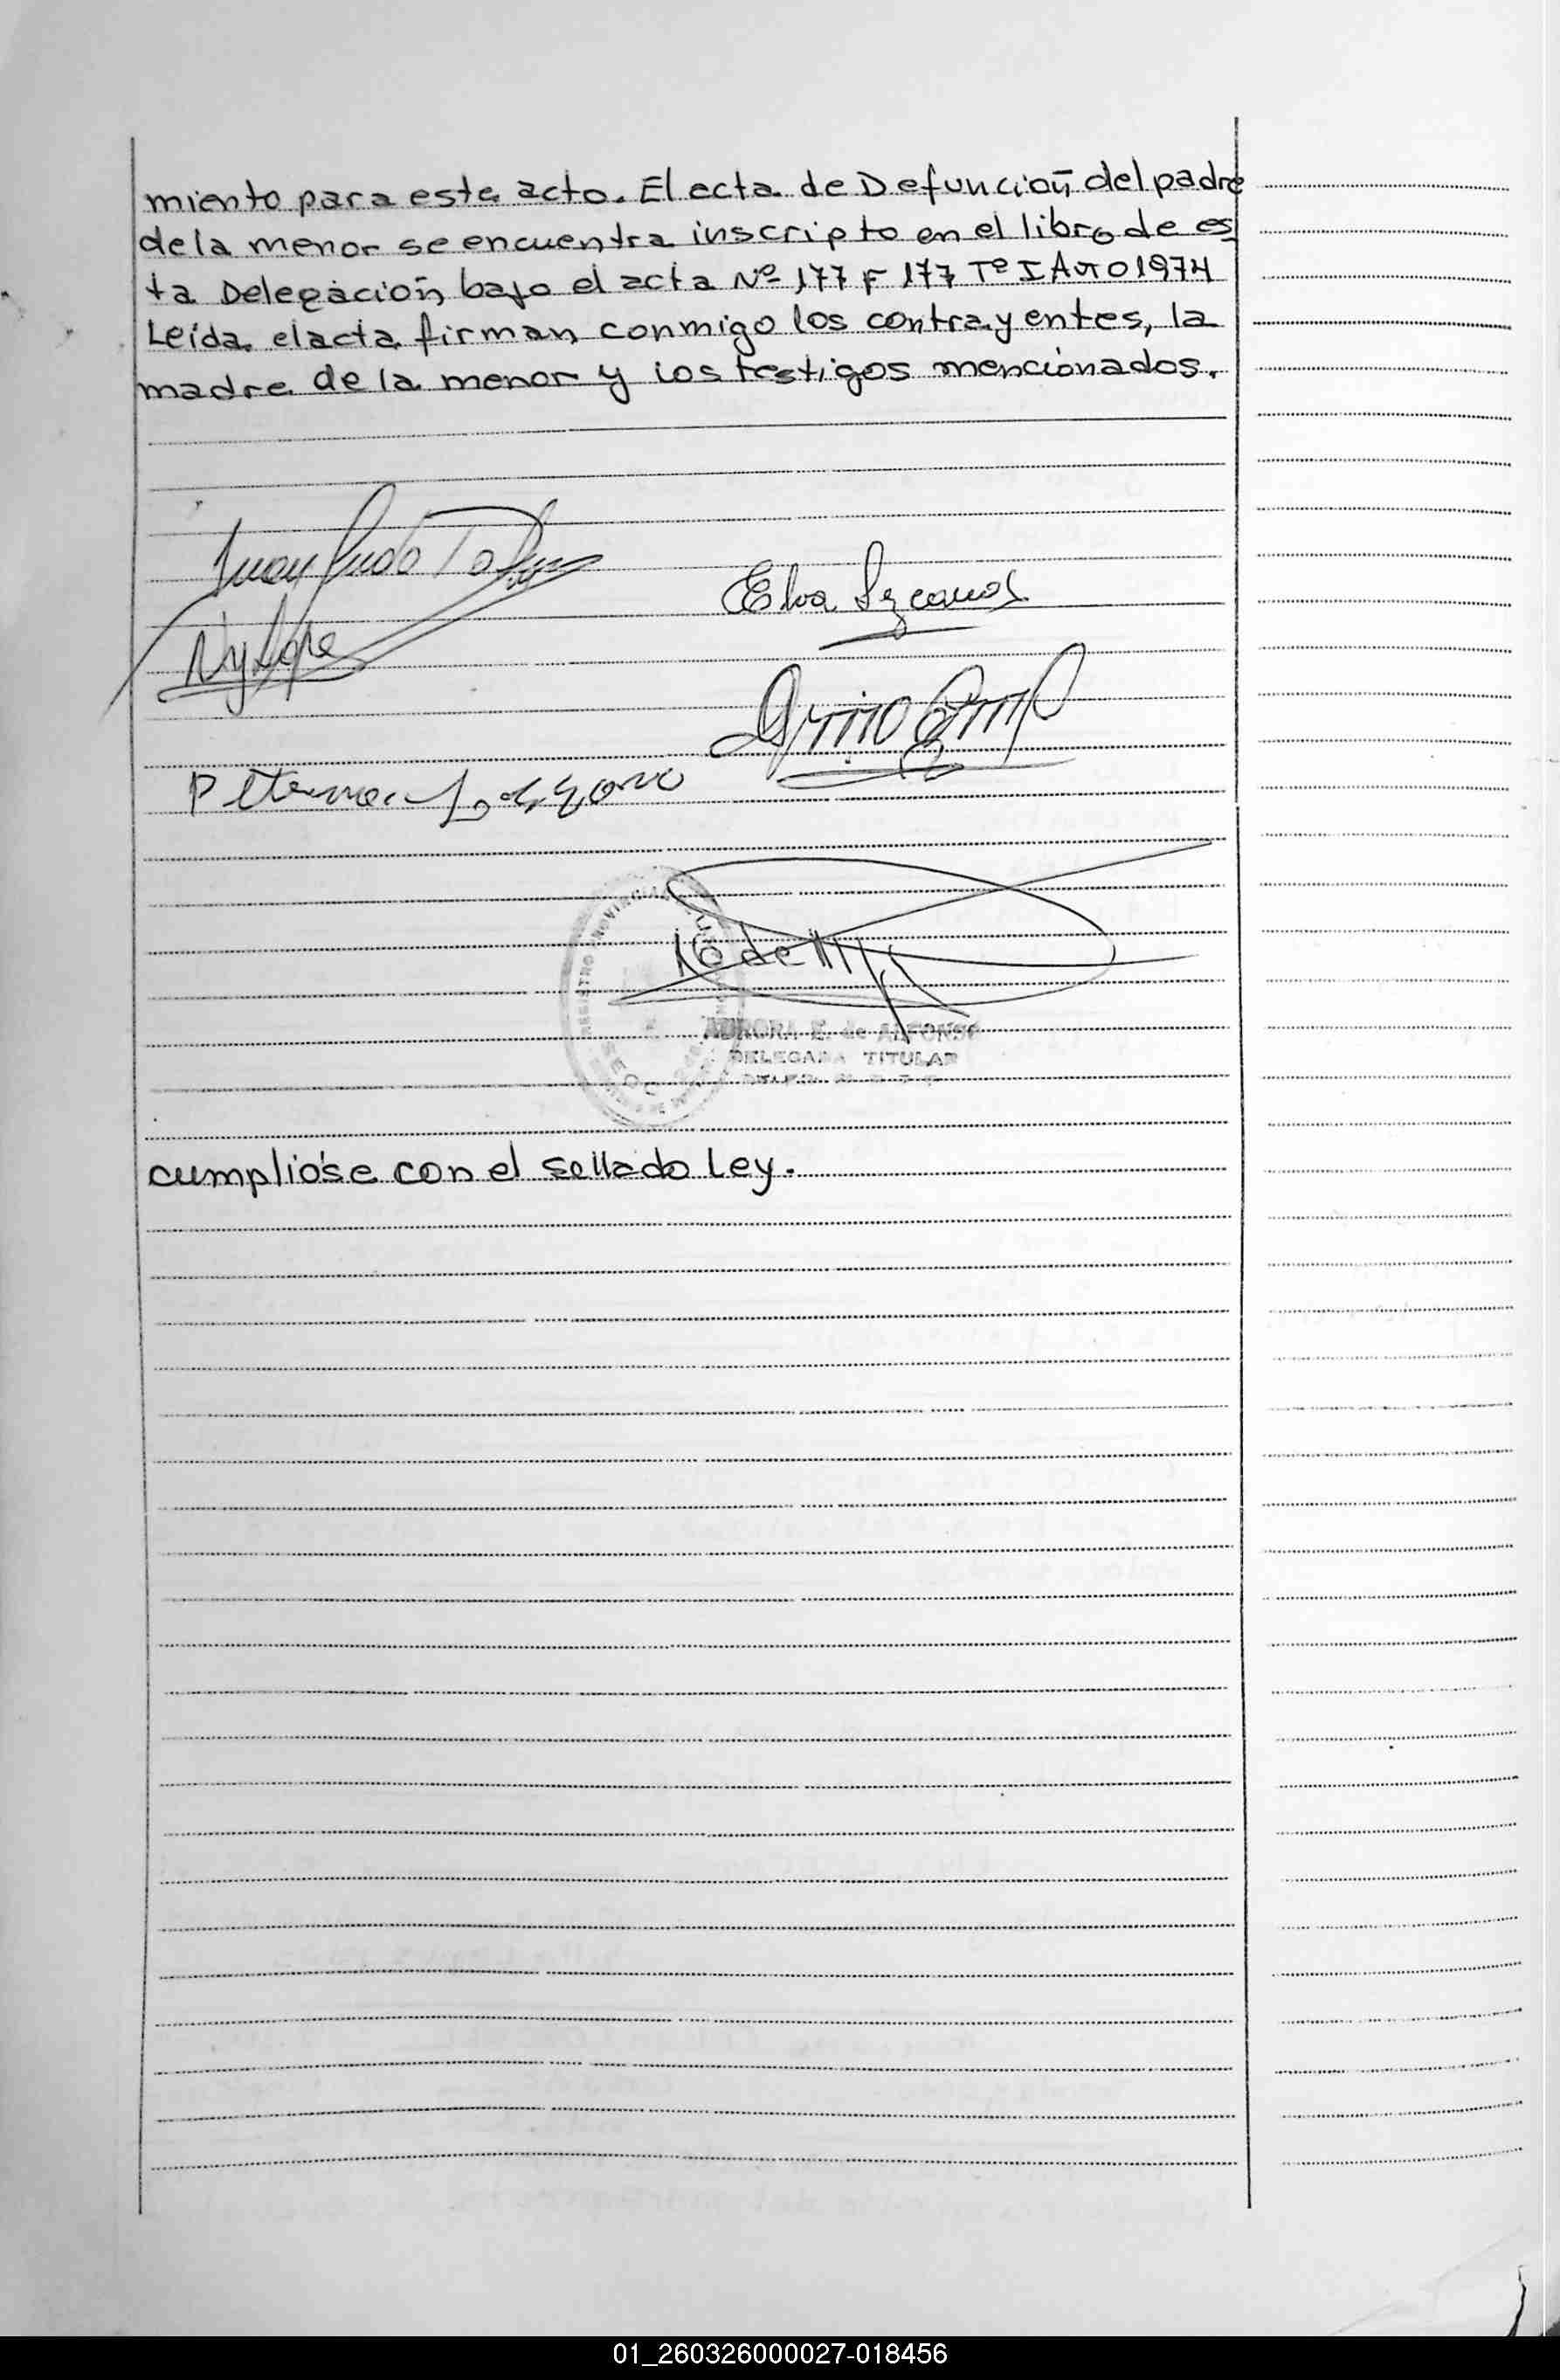 miento para este acto. El acta de Defunción del padre
de la menor se encuentra inscripto en el libro de es
ta Delegación bajo el acta Nº 177 F 177 Tº I Año 1974
Leída el acta firman conmigo los contrayentes, la
madre de la menor y los testigos mencionados.
Juan
Elva Lezcano
Ny Lope
REGISTRO PROVINCIAL
AURORA E. de ALFONSO
DELEGADA TITULAR
SECC
cumplióse con el sellado Ley.
01_260326000027-018456